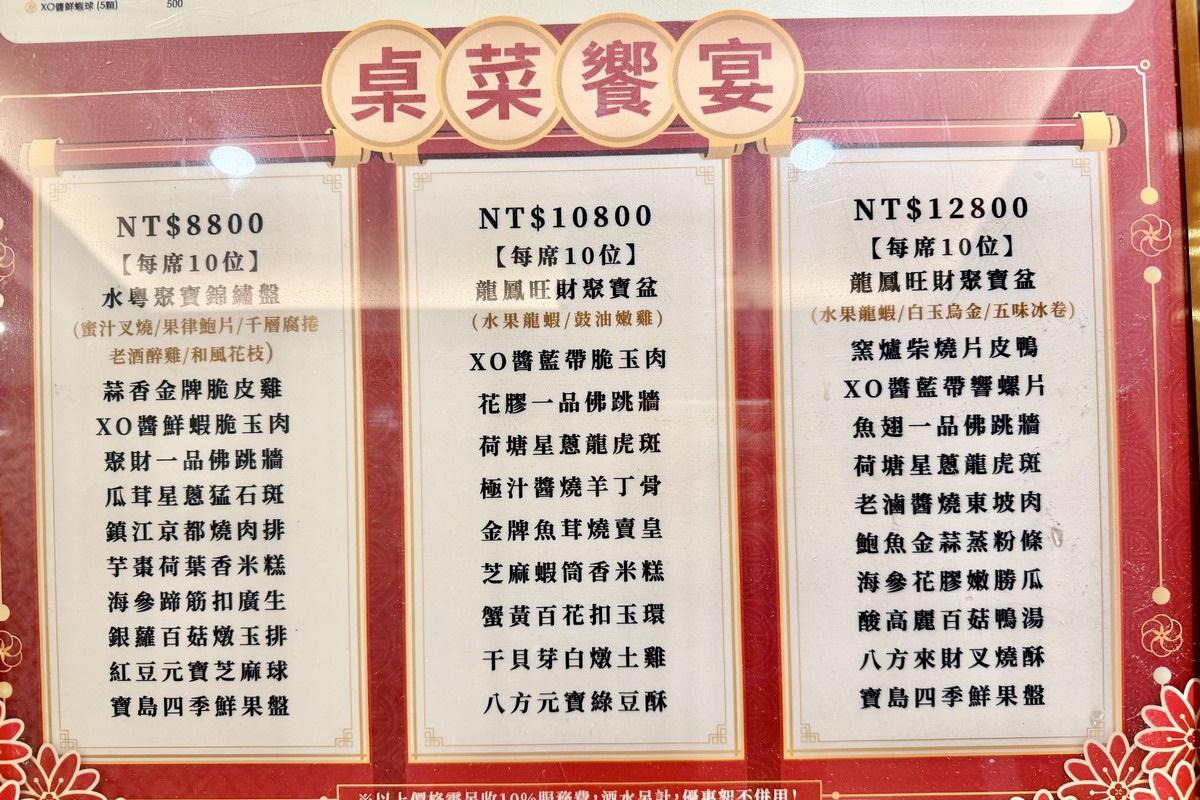 XO醬鮮蝦球 (5顆) 500
桌菜饗宴
NT$8800
【每席10位】
水粵聚寶錦繡盤
(蜜汁叉燒/果律鮑片/千層腐捲
老酒醉雞/和風花枝)
蒜香金牌脆皮雞
XO醬鮮蝦脆玉肉
聚財一品佛跳牆
瓜茸星蔥猛石斑
鎮江京都燒肉排
芋棗荷葉香米糕
海參蹄筋扣廣生
銀蘿百菇燉玉排
紅豆元寶芝麻球
寶島四季鮮果盤
NT$10800
【每席10位】
龍鳳旺財聚寶盆
(水果龍蝦/鼓油嫩雞)
XO醬藍帶脆玉肉
花膠一品佛跳牆
荷塘星蔥龍虎斑
極汁醬燒羊丁骨
金牌魚茸燒賣皇
芝麻蝦筒香米糕
蟹黃百花扣玉環
干貝芽白燉土雞
八方元寶綠豆酥
NT$12800
【每席10位】
龍鳳旺財聚寶盆
(水果龍蝦/白玉烏金/五味冰卷)
窯爐柴燒片皮鴨
XO醬藍帶響螺片
魚翅一品佛跳牆
荷塘星蔥龍虎斑
老滷醬燒東坡肉
鮑魚金蒜蒸粉條
海參花膠嫩勝瓜
酸高麗百菇鴨湯
八方來財叉燒酥
寶島四季鮮果盤
※以上價格需另收10%服務費,酒水另計,優惠恕不併用!